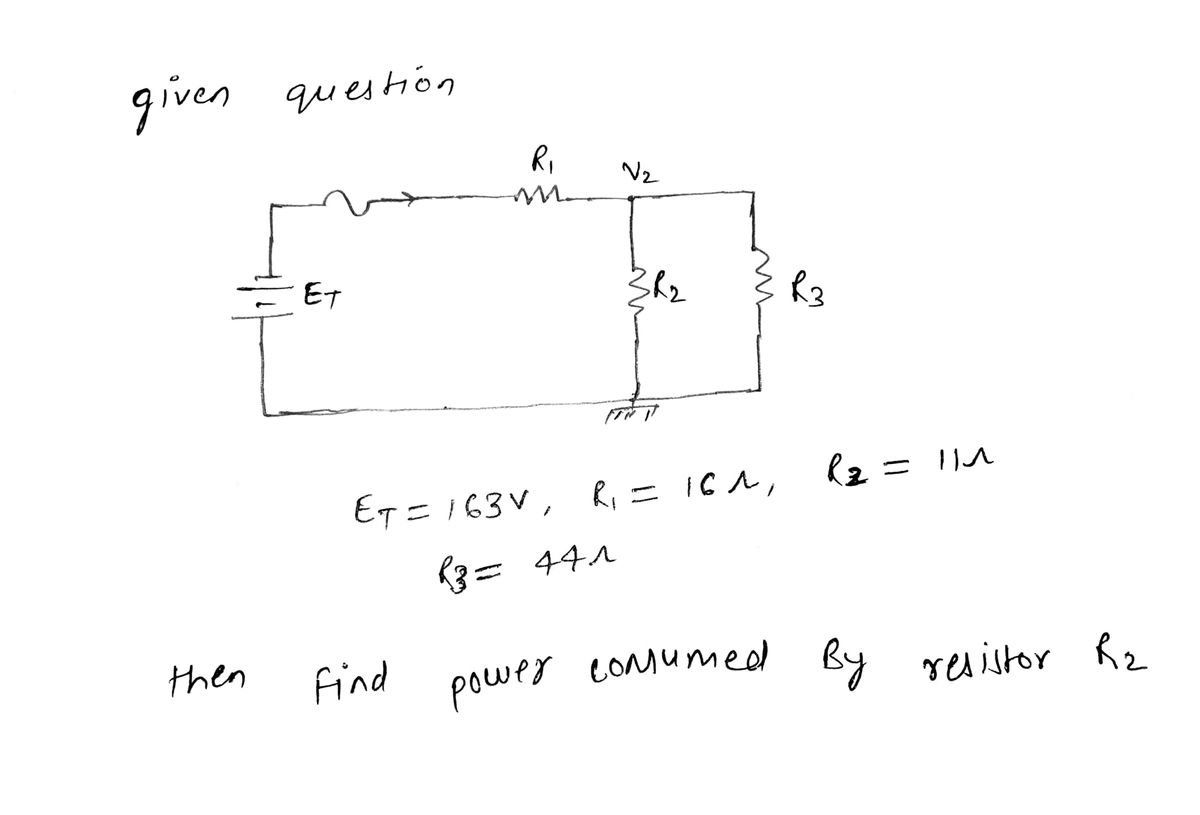 given question
R1 V2
ET R2 R3
ET = 163V, R1 = 16Ω, R2 = 11Ω
R3 = 44Ω
then find power consumed By resistor R2